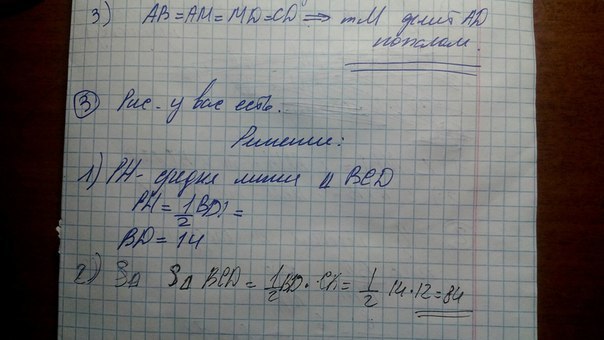 3) AB = AM = MD = CD ⟹ т.M делит AD
пополам.
③ Рис. у вас есть.
Решение:
1) PH - средняя линия Δ BCD
PH = 1/2 BD =
BD = 14
2) S△ S△ BCD = 1/2 BD · CK = 1/2 14 · 12 = 84